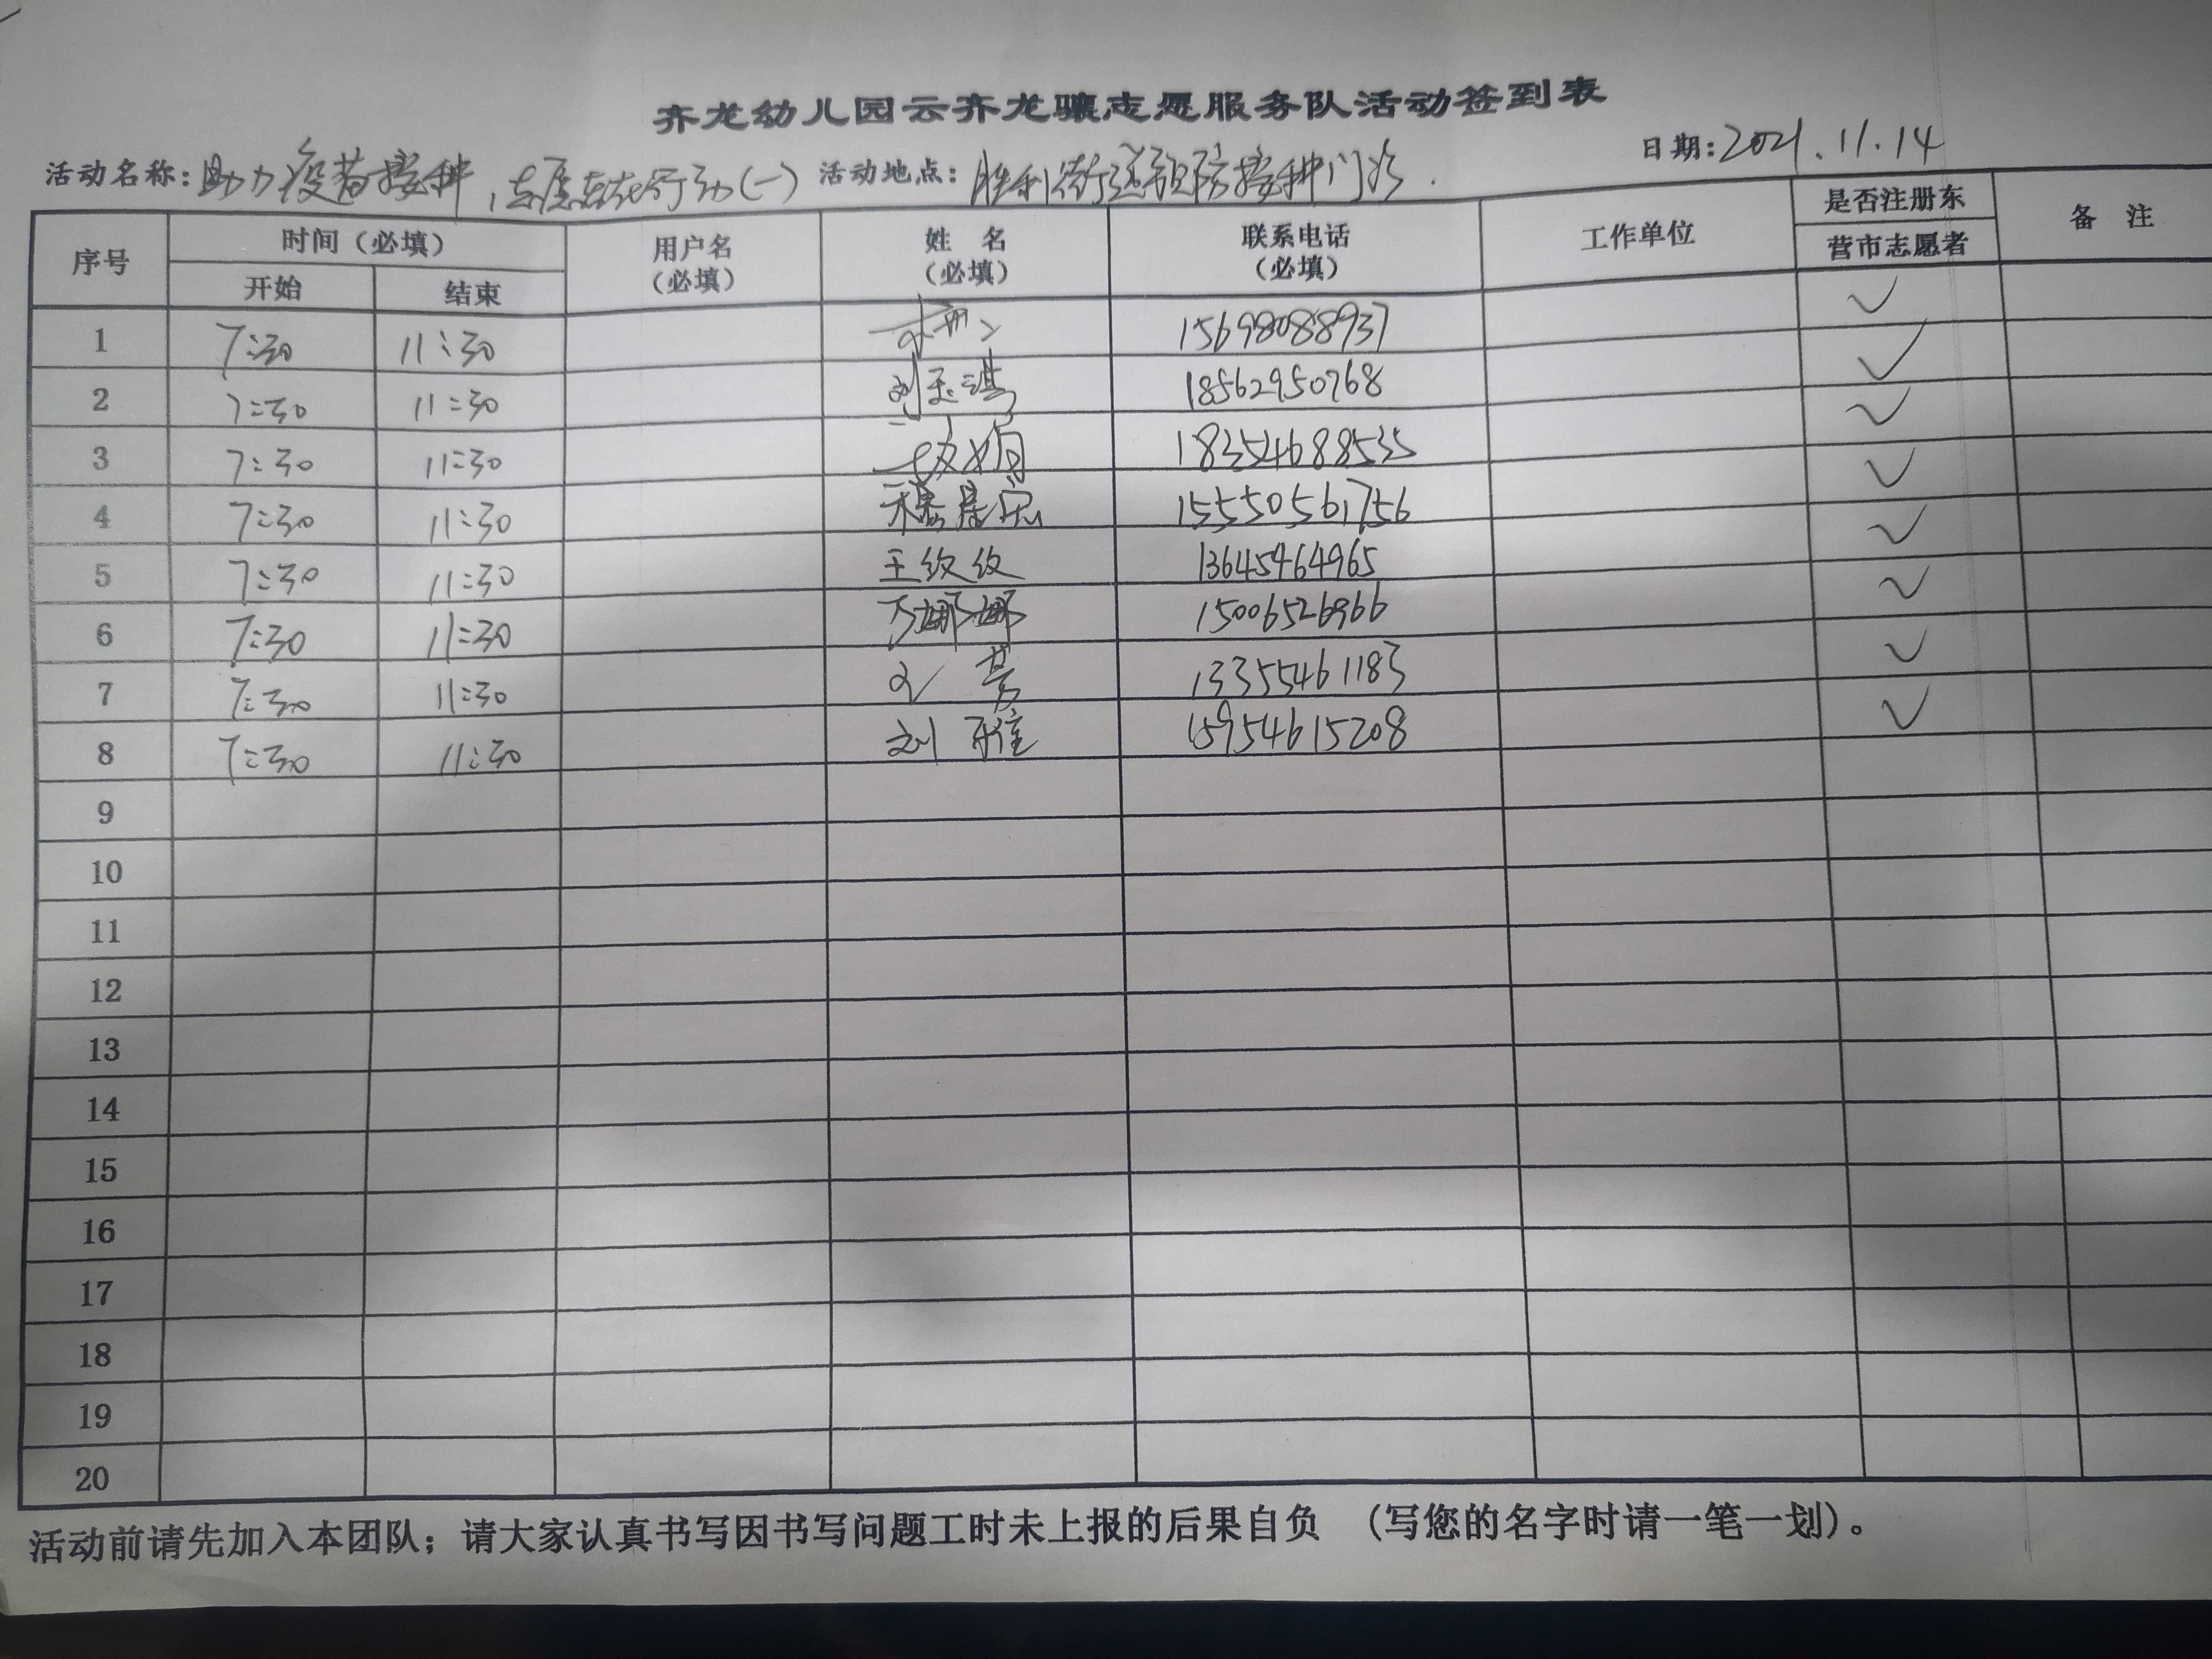 齐龙幼儿园云齐龙骧志愿服务队活动签到表
日期:2021.11.14
活动名称:助力疫苗接种,志愿者在行动(一) 活动地点:胜利街道预防接种门诊.
序号 时间(必填) 用户名(必填) 姓 名(必填) 联系电话(必填) 工作单位 是否注册东营市志愿者 备 注
开始 结束
1 7:30 11:30 15698088937 ✓
2 7:30 11:30 刘玉琪 18562950768 ✓
3 7:30 11:30 18354688535 ✓
4 7:30 11:30 15550561756 ✓
5 7:30 11:30 王纹纹 13645464965 ✓
6 7:30 11:30 万娜娜 15006526966 ✓
7 7:30 11:30 13355461183 ✓
8 7:30 11:30 刘 15954615208 ✓
9
10
11
12
13
14
15
16
17
18
19
20
活动前请先加入本团队;请大家认真书写因书写问题工时未上报的后果自负 (写您的名字时请一笔一划)。